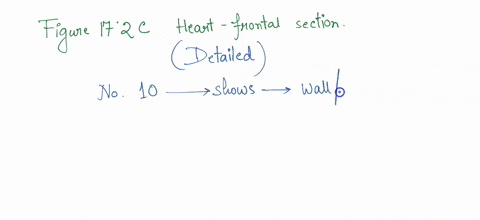 Figure 17.2 C Heart - frontal section.
(Detailed)
No. 10 → shows → wall